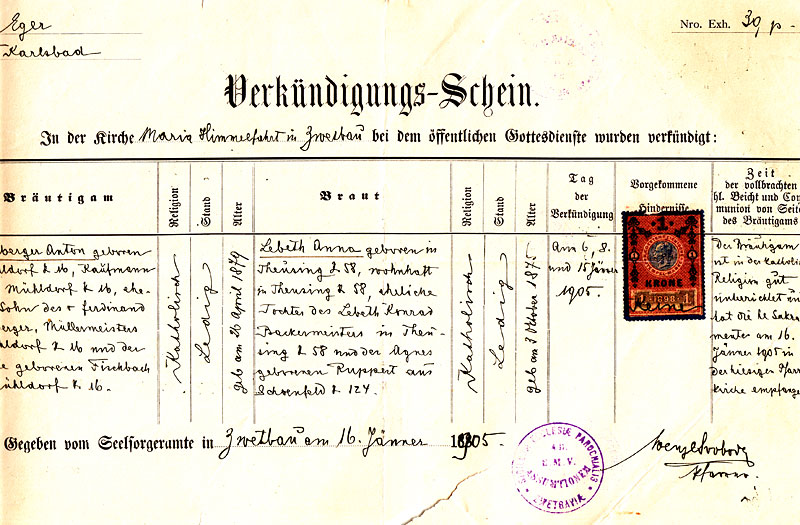 Eger
Nro. Exh. 39 p -
Karlsbad
Verkündigungs-Schein.
In der Kirche Maria Himmelfahrt in Zwetbau bei dem öffentlichen Gottesdienste wurden verkündigt:
Bräutigam
Religion
Stand
Alter
Braut
Religion
Stand
Alter
Tag
der
Verkündigung
Vorgekommene
Hindernisse
Zeit
der vollbrachten
hl. Beicht und Com
munion von Seite
des Bräutigams
berger Anton geboren
ldorf k 16, Kaufmann
Mühldorf k 16, ehe-
Sohn des + ferdinand
erger, Müllermeisters
ldorf k 16 und der
e geborenen Fischbach
ühldorf k 16.
Katholisch
Ledig
geb am 26 April 1879
Lebeth Anna geboren in
Theusing k 58, wohnhaft
in Theusing k 58, eheliche
Tochter des Lebeth Konrad
Backermeisters in Theu-
sing k 58 und der Agnes
geborenen Ruppert aus
Schoenfeld k 124.
Katholisch
Ledig
geb am 3 Oktober 1875
Am 6, 8.
und 15 Jänner
1905.
1
KRONE
1 1898 1
Keine
Der Bräutigam
ist in der katholis
Religion gut
unterrichtet un
hat die hl Sakra
menter am 16.
Jänner 1905 in
der hiesiger Pfarr
kirche empfange
Gegeben vom Seelsorgeramte in Zwetbau am 16. Jänner 1905.
ECCLESIÆ PAROCHIALIS
B. M. V.
ASSUMPTIONEM
ZWETBAVIÆ
Wenzl Svoboda
Pfarrer.